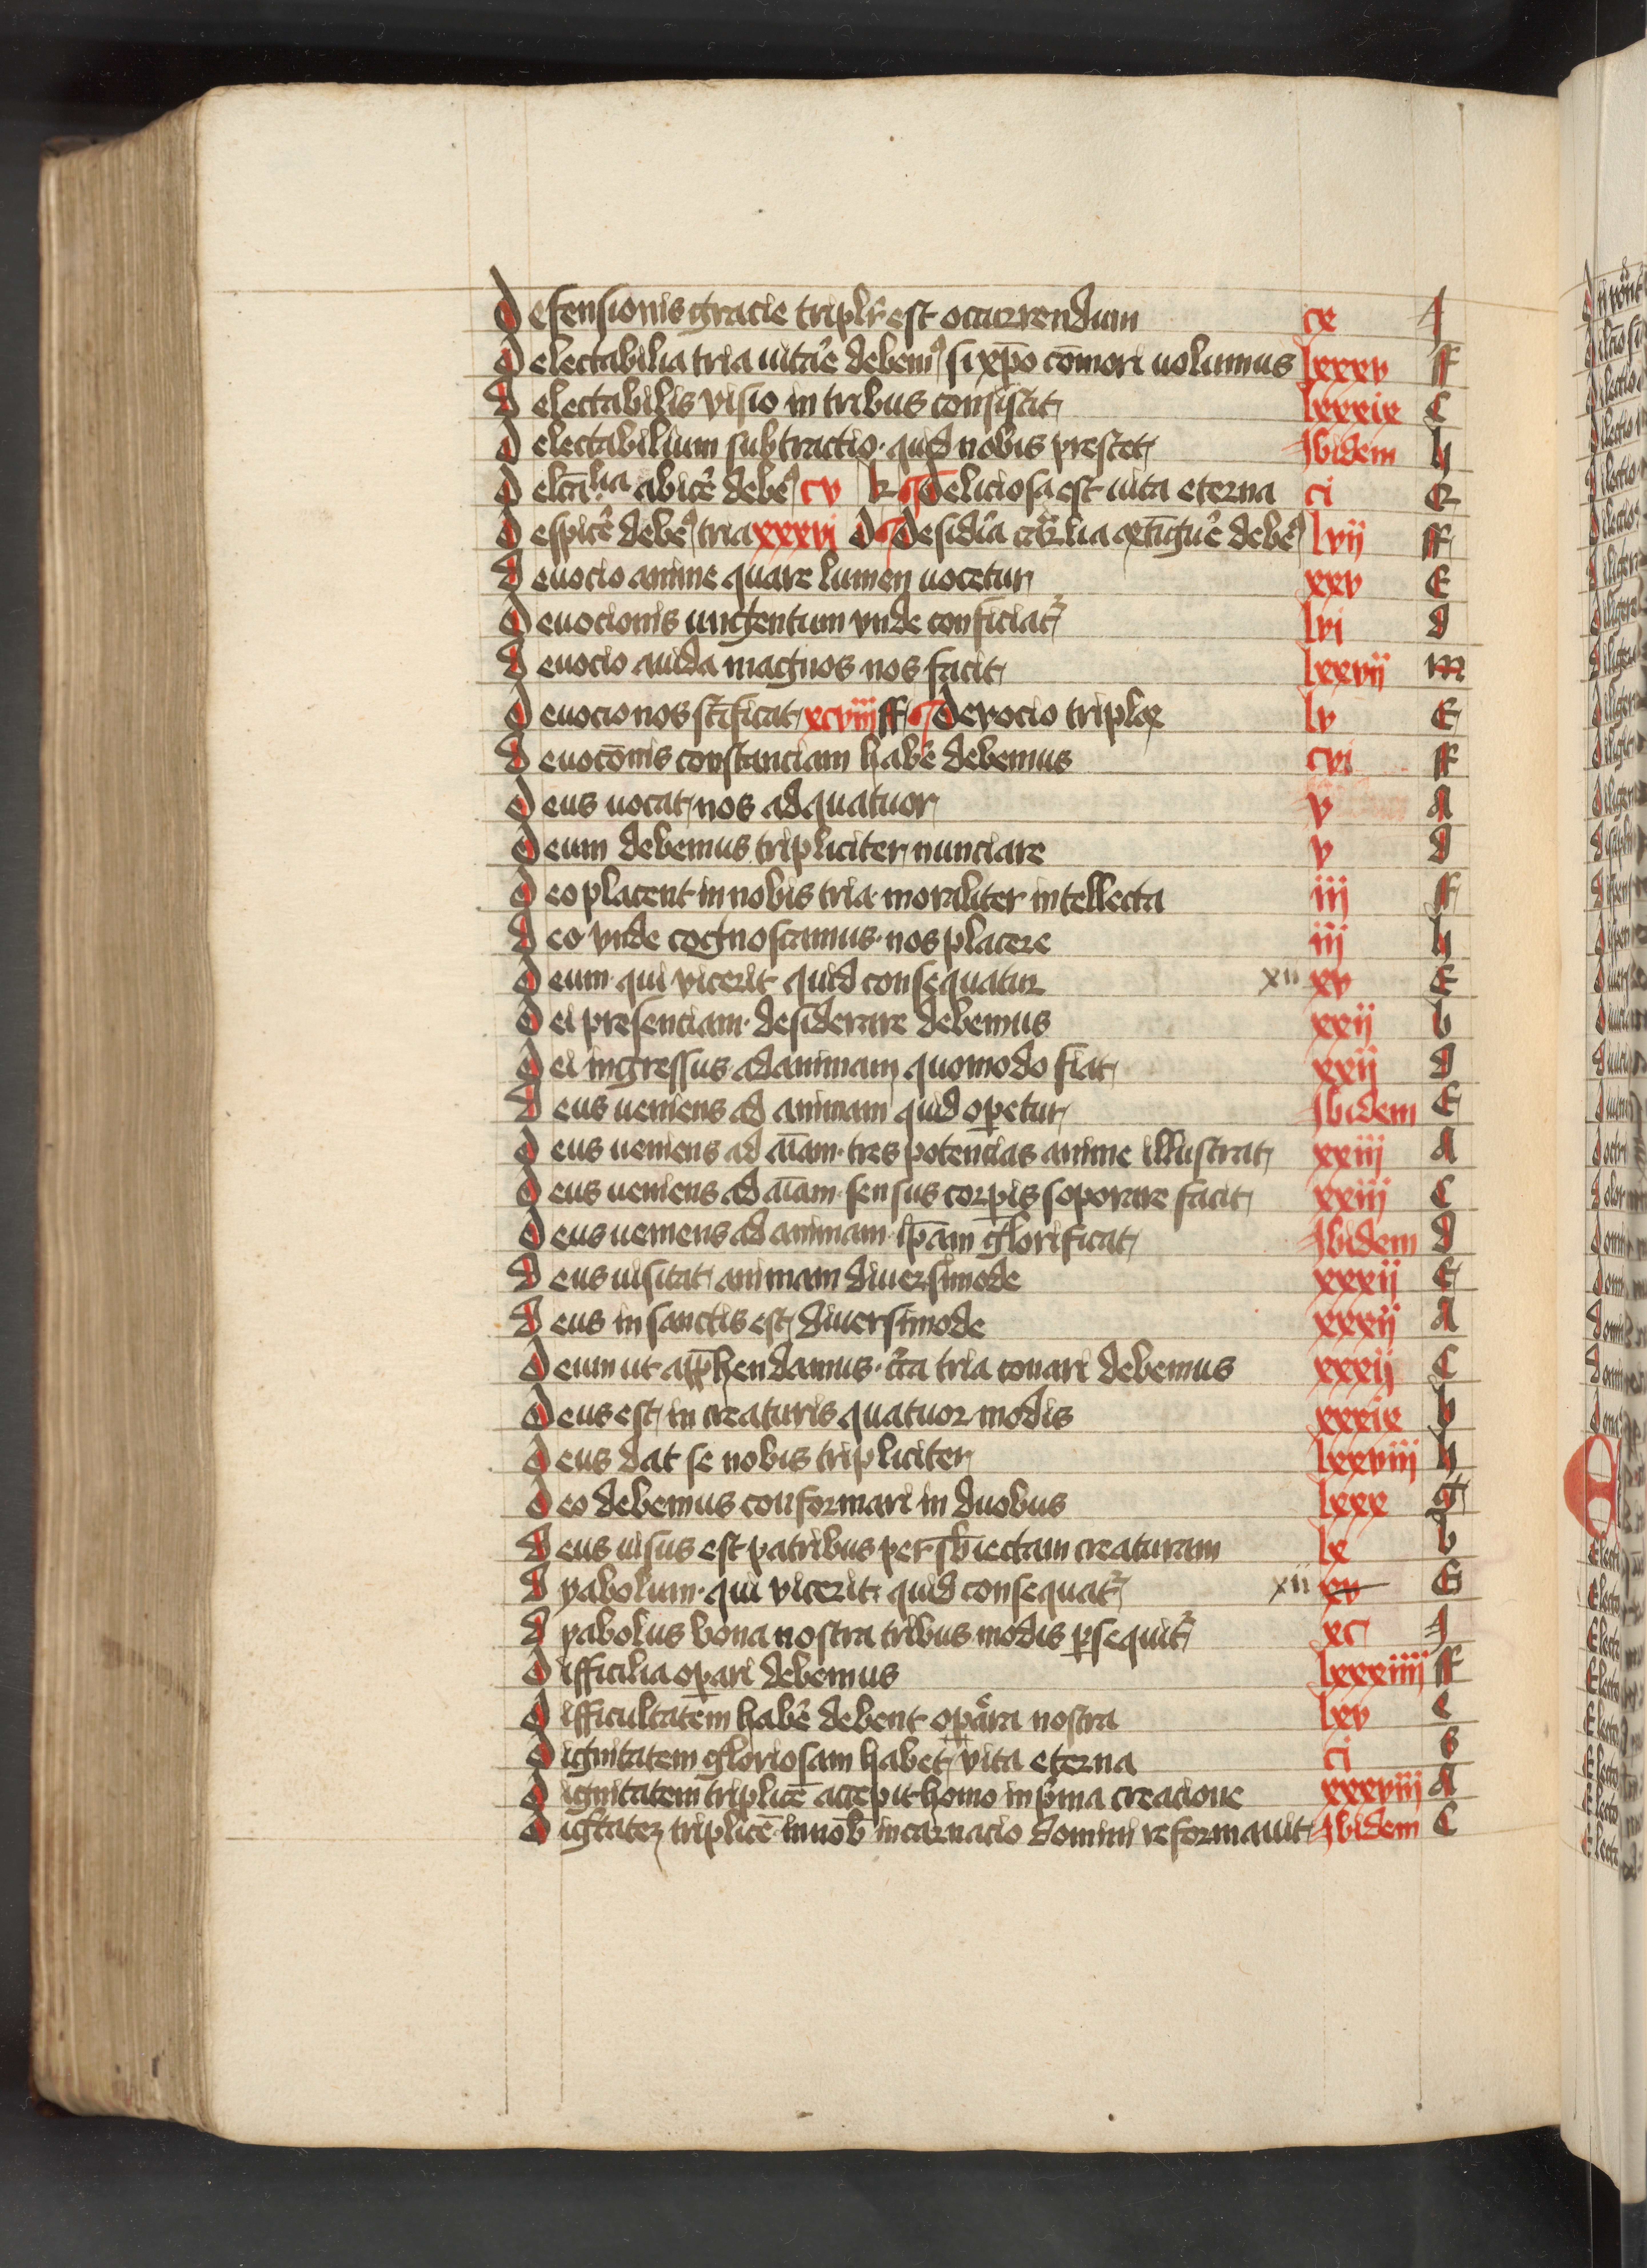 Defensionis gracie triplr̄ est occurrendum cx J
Delectabilia tria uitar̄e debemꝰ si xp̄o cōmori uolumus lxxxv ff
Delectabilis visio in tribus consistit lxxxix C
Delectabilium subtractio · quid nobis prestet Ibidem h
abic̄e debeꝰ cv k ¶ Deliciosa est uita eterna ci E
Despic̄e debeꝰ tria xxxvi D ¶ Desid̄ia debeꝰ lvii ff
Deuocio anime quare lumen uocetur xxv E
Deuocionis ungentum vnde conficiat᷑ lvi d
Deuocio auida magnos nos facit lxxvii m
Deuocio nos sc̄ificat xcviiii ff ¶ Devocio triplex lv E
Deuocōnis constanciam hab̄e debemus cvi ff
Deus uocat nos ad quatuor v A
Deum debemus tripliciter nunciare v d
Deo placent in nobis tria moraliter intellecta iij ff
Deo vnde cognoscamus · nos placere iij h
Deum · qui vicerit quid consequatur xii xv E
Dei presenciam · desiderare debemus xxij b
Dei ingressus ad animam quomodo fiat xxij d
Deus ueniens ad animam quid oꝑetur Ibidem E
Deus ueniens ad aīam · tres potencias anime illustrat xxiij A
Deus ueniens ad aīam · sensus corꝑis soporare facit xxiij C
Deus ueniens ad animam · ip̄am glorificat Ibidem d
Deus uisitat animam diuersimode xxxij E
Deus in sanctis est diuersimode xxxij A
Deum ut app̄hendamus · cir̄ca tria conari debemus xxxij C
Deus est in creaturis quatuor modis xxxix b
Deus dat se nobis tripliciter lxxviij h
Deo debemus conformari in duobus lxxx g
Deus uisus est patribus per sb̄iectam creaturam lx b
Dyabolum · qui vicerit · quid consequat᷑ xii xv G
Dyabolus bona nostra tribus modis ꝑsequit᷑ xc J
Difficilia oꝑari debemus lxxxiiij ff
Difficultatem hab̄e debent oꝑa nostra lxv e
Dignitatem gloriosam habet vita eterna ci B
Dignitatem triplicē accepit homo in pͥma creacione xxxviij A
Digītateꝫ triplicē · in nob̄ incarnacio domini reformauit Ibidem C